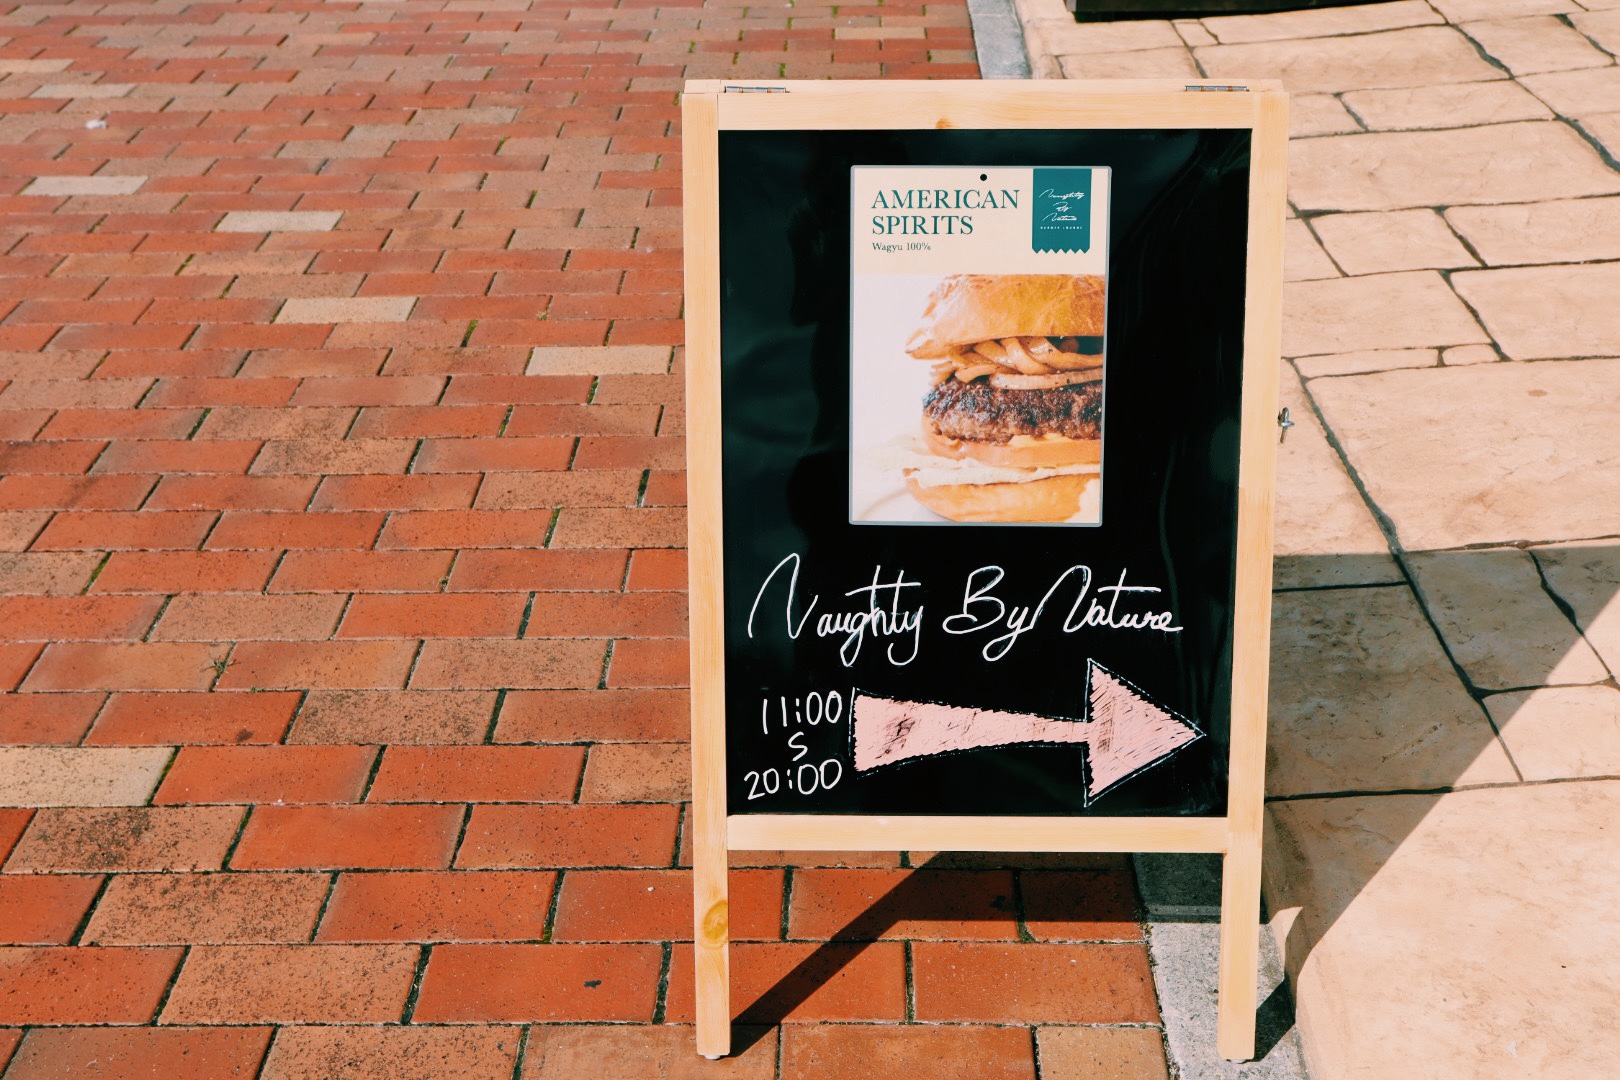 AMERICAN
SPIRITS
Wagyu 100%
Naughty
By
Nature
Naughty By Nature
11:00
S
20:00